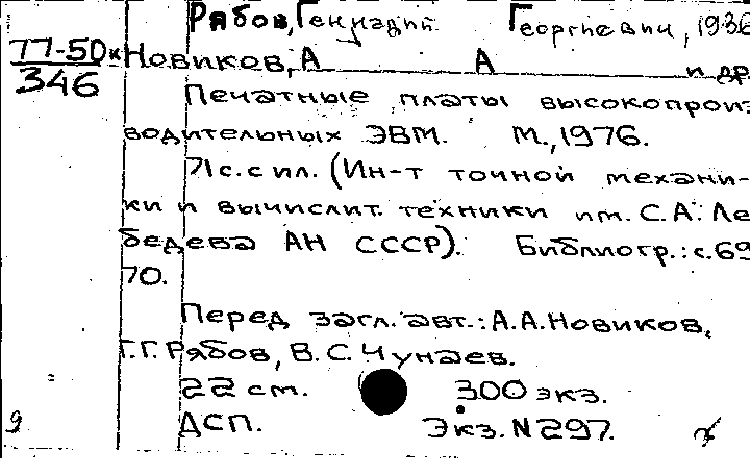 Рябов, Геннадий Георгиевич, 1936
77-50к
346
Новиков, А А и др
Печатные платы высокопроиз-
водительных ЭВМ. М., 1976.
71 с. с ил. (Ин-т точной механи-
ки и вычислит. техники им. С.А. Ле
бедева АН СССР). Библиогр.: с. 69
70.
Перед загл. авт.: А.А. Новиков,
Г.Г. Рябов, В.С. Чунаев.
22 см. 300 экз.
9 ДСП. Экз. N 297.